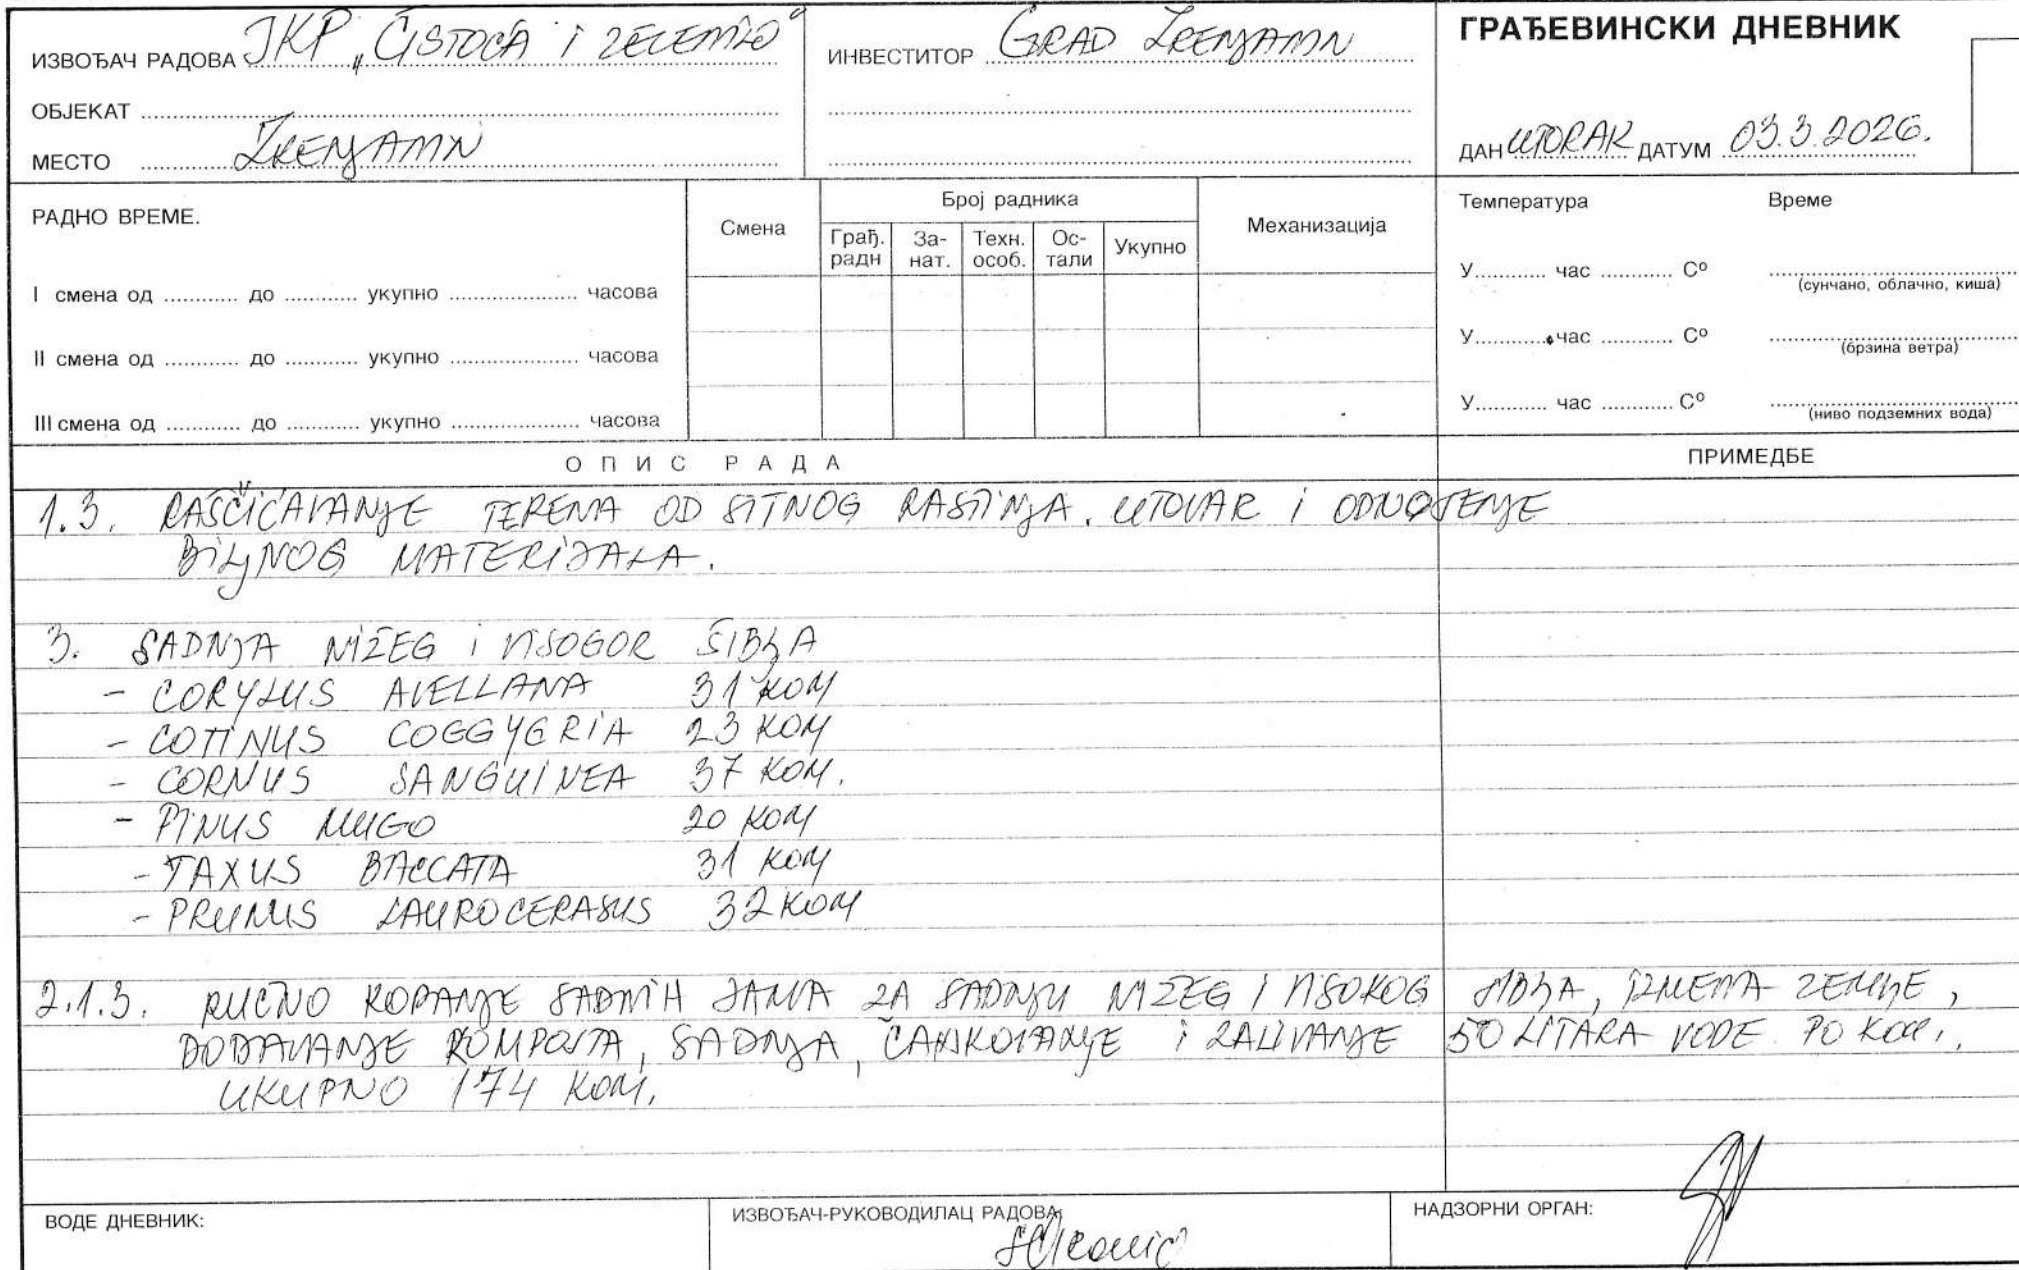 ИЗВОЂАЧ РАДОВА JKP "ČISTOĆA I ZELENILO"
ОБЈЕКАТ
МЕСТО ZRENJANIN
ИНВЕСТИТОР GRAD ZRENJANIN
ГРАЂЕВИНСКИ ДНЕВНИК
ДАН UTORAK ДАТУМ 03.3.2026.
РАДНО ВРЕМЕ.
I смена од ............ до ............ укупно ...................... часова
II смена од ............ до ............ укупно ...................... часова
III смена од ............ до ............ укупно ...................... часова
Смена
Број радника
Грађ. радн
За- нат.
Техн. особ.
Ос- тали
Укупно
Механизација
Температура Време
У............ час ............ C°
(сунчано, облачно, киша)
У............ час ............ C°
(брзина ветра)
У............ час ............ C°
(ниво подземних вода)
ОПИС РАДА
ПРИМЕДБЕ
1.3. RAŠČIĆAVANJE TERENA OD SITNOG RASTINJA. UTOVAR I ODNOŠENJE
BILJNOG MATERIJALA.
3. SADNJA NIŽEG I VISOGOR ŠIBLJA
- CORYLUS AVELLANA 31 KOM
- COTINUS COGGYGRIA 23 KOM
- CORNUS SANGUINEA 37 KOM.
- PINUS MUGO 20 KOM
- TAXUS BACCATA 31 KOM
- PRUNUS LAUROCERASUS 32 KOM
2.1.3. RUČNO KOPANJE SADNIH JAMA ZA SADNJU NIŽEG I VISOKOG ŠIBLJA, IZMENA ZEMLJE,
DODAVANJE KOMPOSTA, SADNJA, ČANKOVANJE I ZALIVANJE 50 LITARA VODE PO KOM.,
UKUPNO 174 KOM.
ВОДЕ ДНЕВНИК:
ИЗВОЂАЧ-РУКОВОДИЛАЦ РАДОВА:
НАДЗОРНИ ОРГАН: